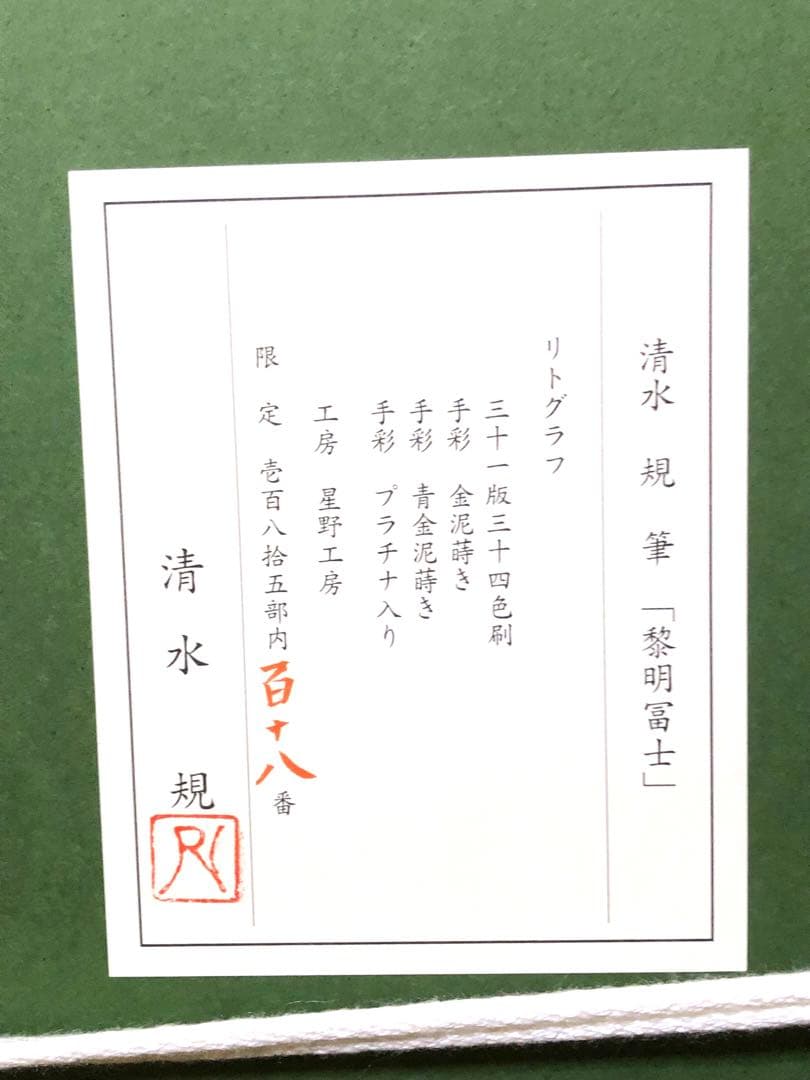 清水 規 筆 「黎明冨士」
リトグラフ
三十一版三十四色刷
手彩 金泥蒔き
手彩 青金泥蒔き
手彩 プラチナ入り
工房 星野工房
限定 壱百八拾五部内 百十八 番
清水 規